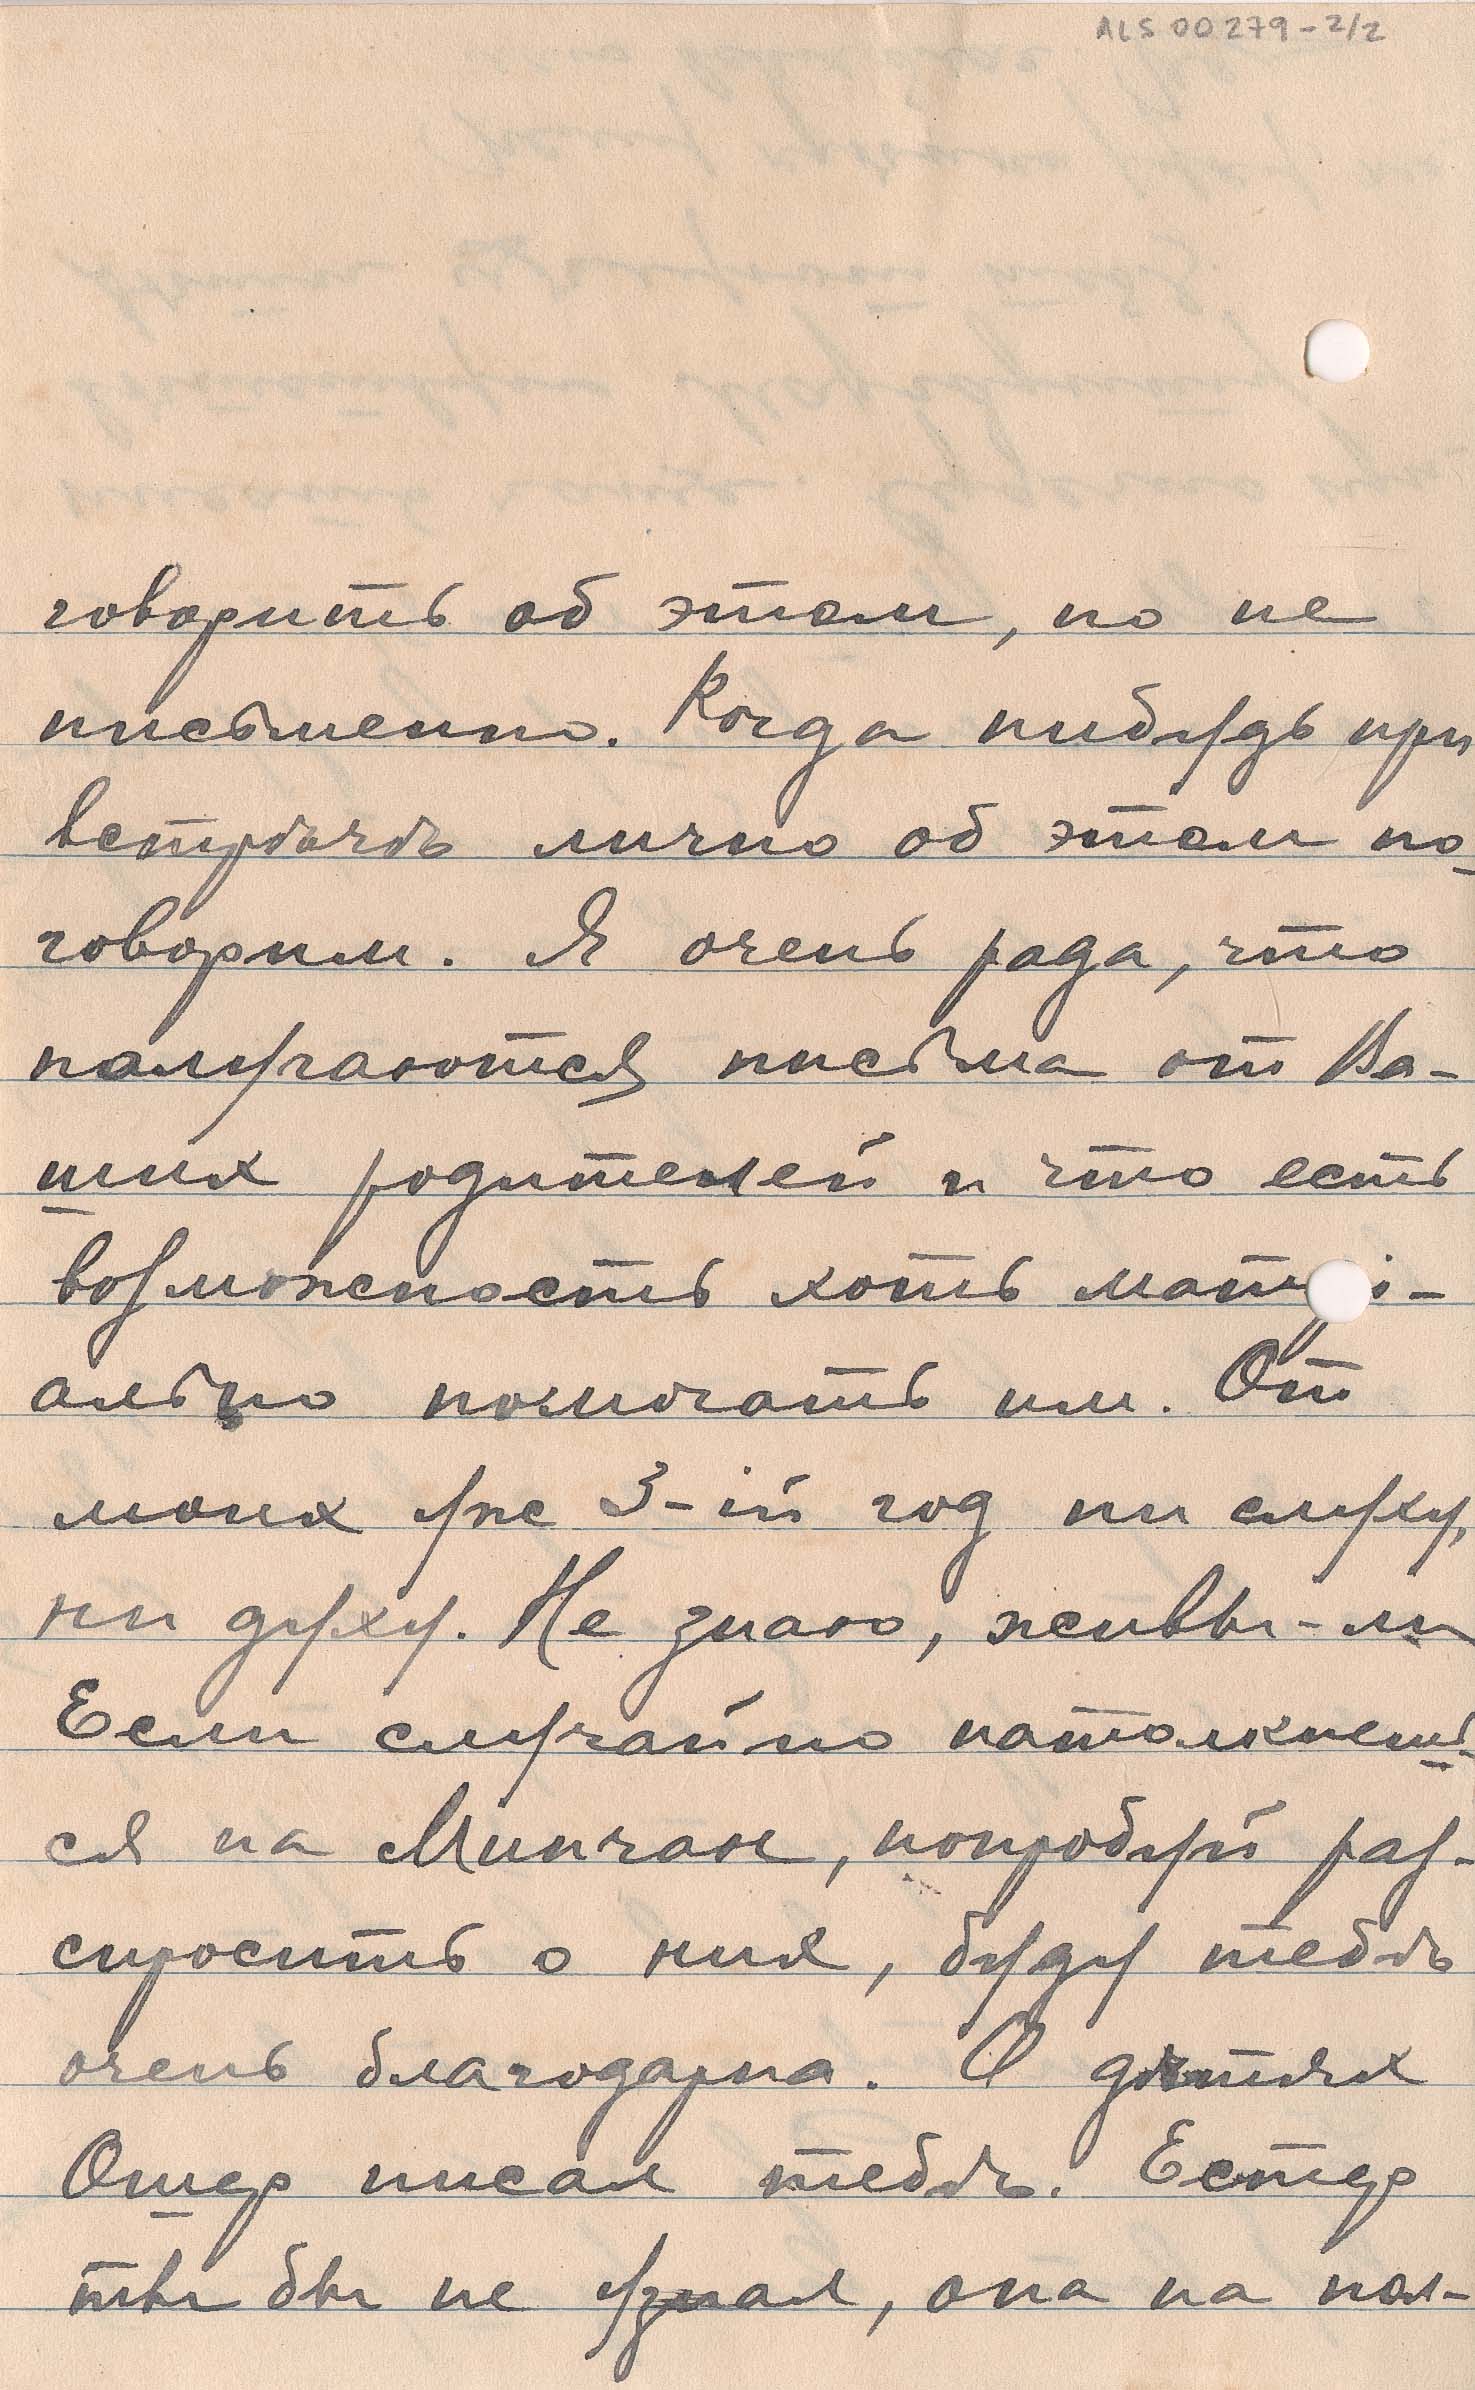 ALS 00279-2/2
говорить об этом, но не
письменно. Когда нибудь при
встрѣчѣ лично об этом по-
говорим. Я очень рада, что
получаются письма от Ва-
ших родителей и что есть
возможность хоть матері-
ально помогать им. От
моих уже 3-ій год ни слуху,
ни духу. Не знаю, живы-ли
Если случайно натолкнешь-
ся на Минчан, попробуй раз-
спросить о них, буду тебѣ
очень благодарна. О дѣтях
Ошер писал тебѣ. Естер
ты бы не узнал, она на пол-